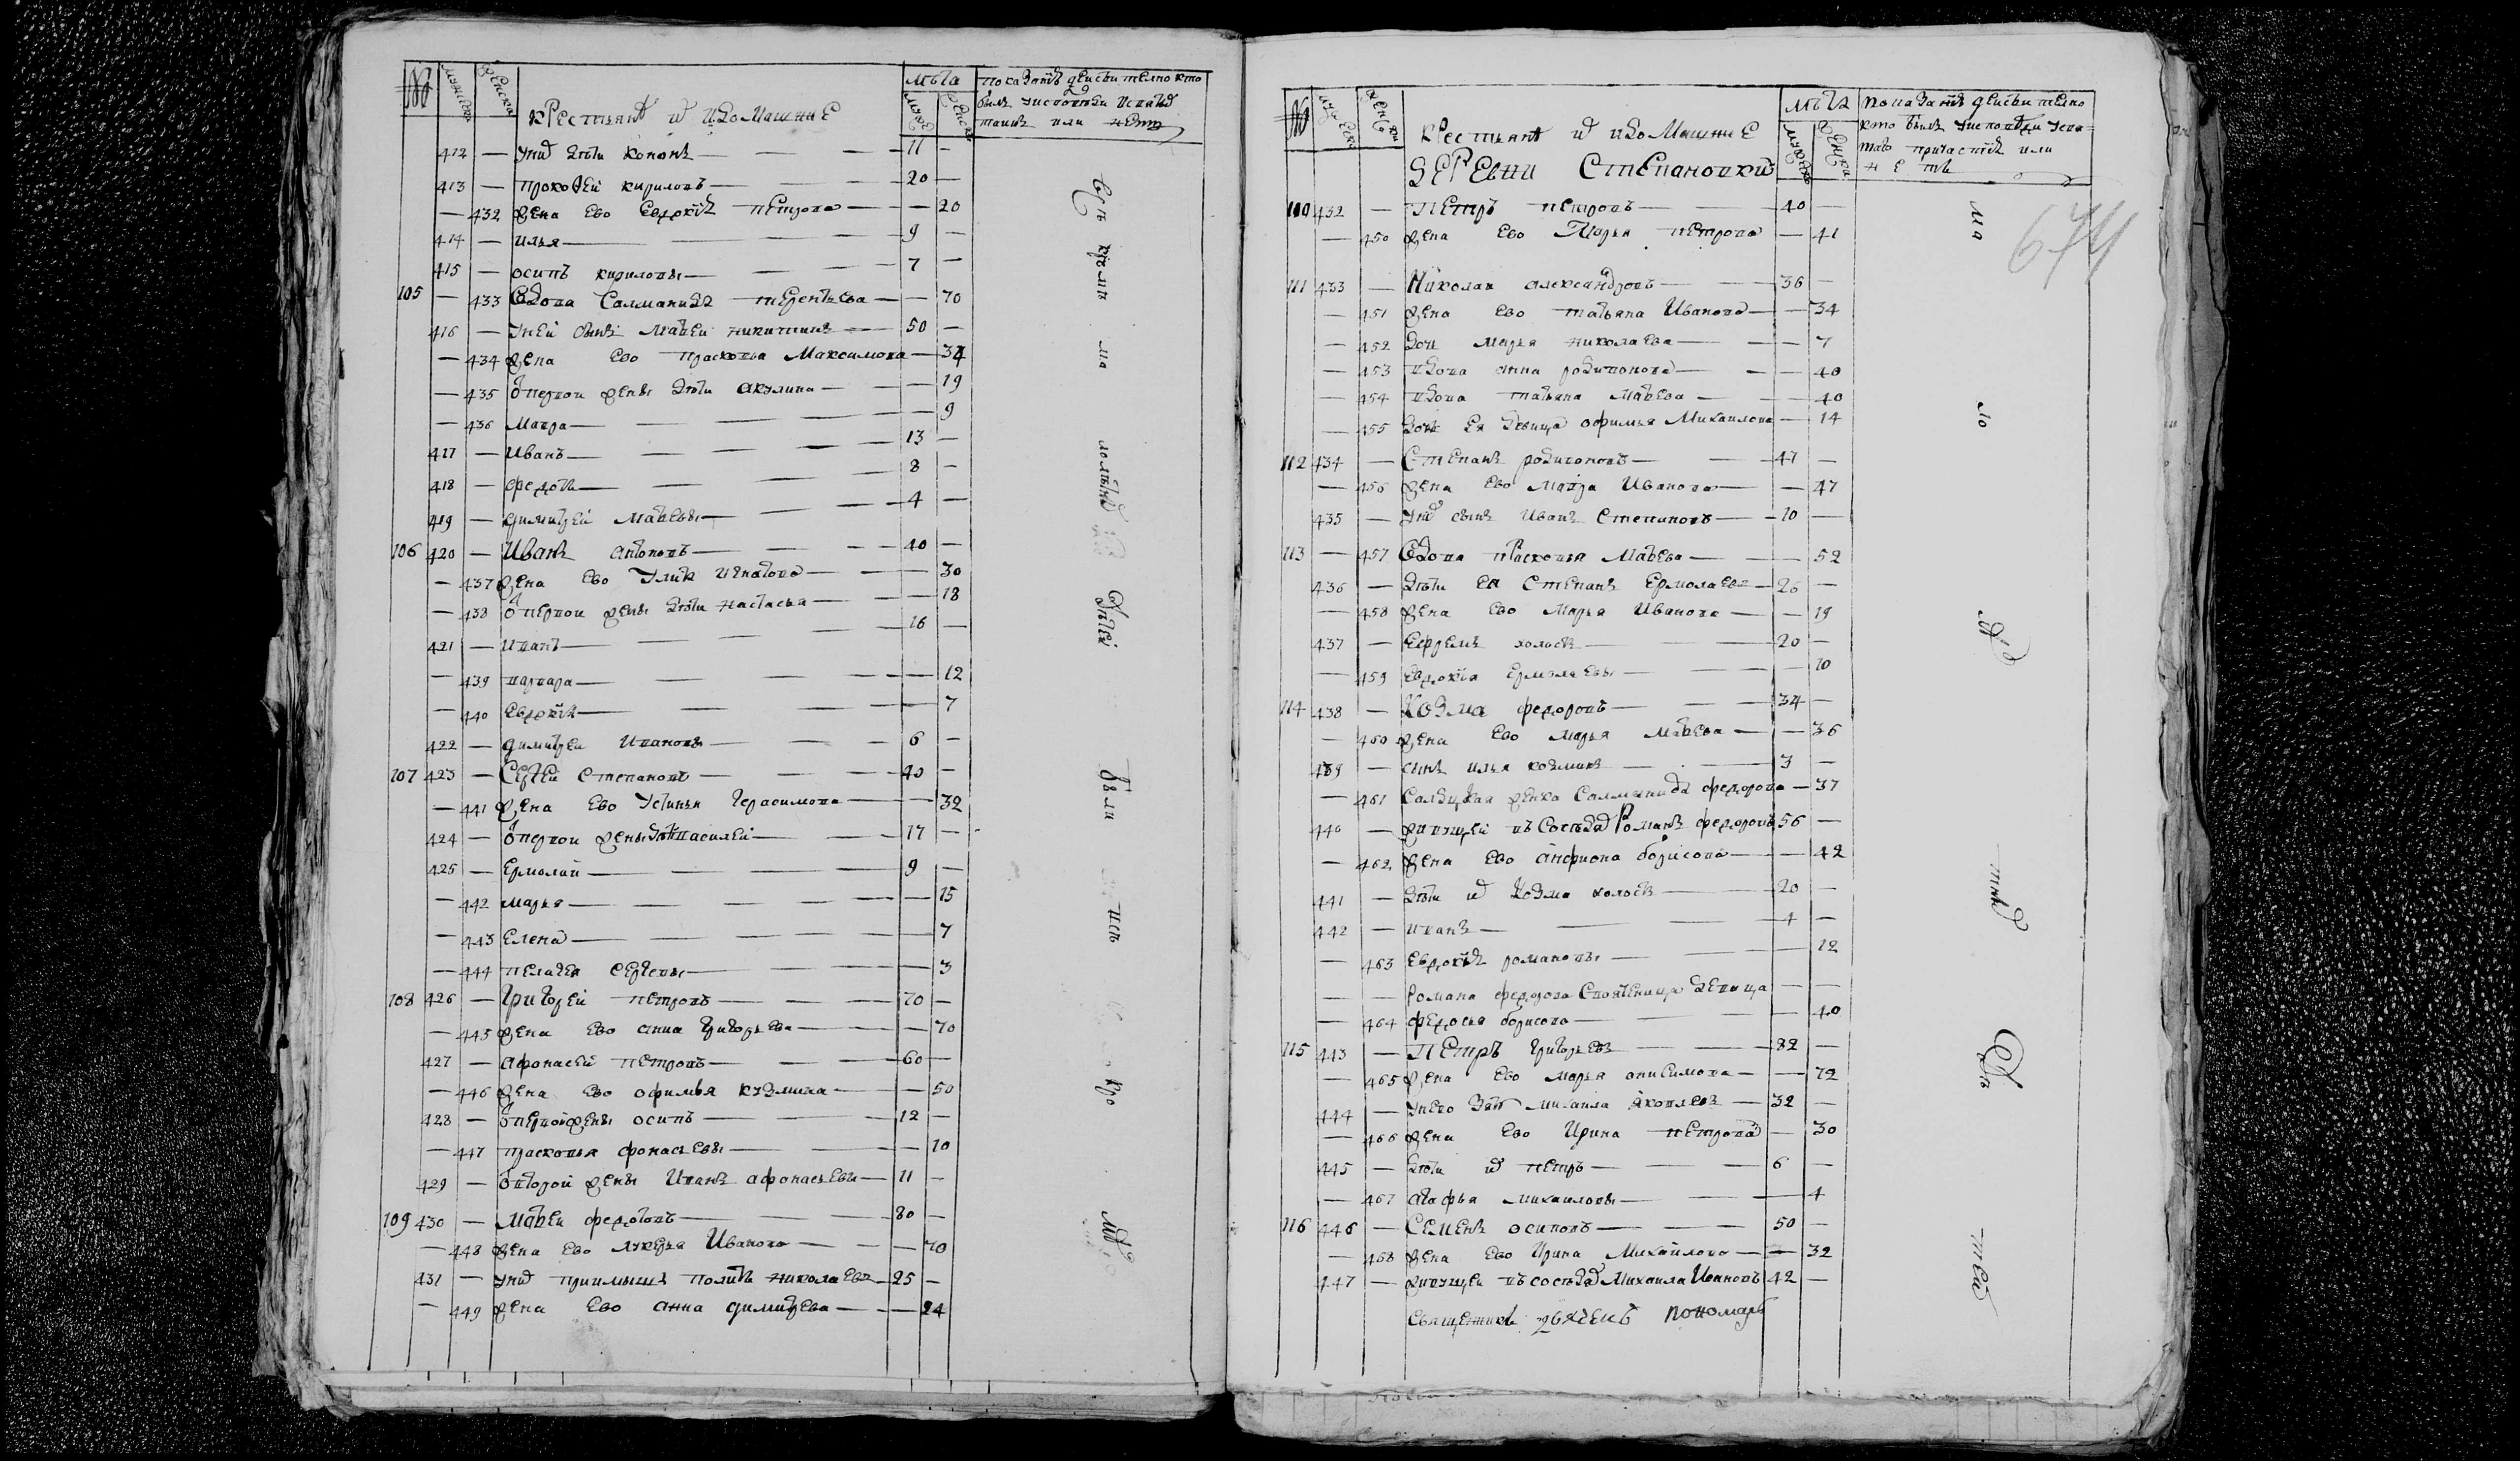 № мужеска женска крестьяне и их домашние
лѣта
муже женска
показанїе действително кто
былъ у исповѣди и святаго
таинъ или нетъ
412 — у них дѣти кононъ — 11 —
413 — прокофей кириловъ — 20 —
— 432 жена ево евдокїя петрова — — 20
414 — илья — 9 —
415 — осипъ кириловы — 7 —
105 — 433 вдова саломанида терентьева — — 70
416 — у ней сынъ матвей никитинъ — 50 —
— 434 жена ево прасковья максимова — 34
— 435 от первой жены дѣти акулина — — 19
— 436 мавра — — 9
417 — иванъ — 13 —
418 — федотъ — 8 —
419 — димитрей матвеевы — 4 —
106 420 — иванъ антоновъ — 40 —
— 437 жена ево улита игнатова — — 30
— 438 от первой жены дѣти настасья — — 18
421 — иванъ — 16 —
— 439 варвара — — 12
— 440 евдокїя — — 7
422 — димитрей ивановы — 6 —
107 423 — сергей степановъ — 40 —
— 441 жена ево устинья герасимова — — 32
424 — от первой жены дѣти василей — 17 —
425 — ермолай — 9 —
— 442 марья — — 15
— 443 елена — — 7
— 444 пелагея сергеевы — — 3
108 426 — григорей петровъ — 70 —
— 445 жена ево анна григорьева — — 70
427 — афонасей петровъ — 60 —
— 446 жена ево офимья кузмина — — 50
428 — от первой жены осипъ — 12 —
— 447 прасковья фонасьевы — — 10
429 — от второй жены иванъ афонасьевы — 11 —
109 430 — матвеи федотовъ — 80 —
— 448 жена ево лукерья иванова — — 70
431 — у них приимышъ николаевъ — 25 —
— 449 жена ево анна димитрева — — 24
№ мужеска женска крестьяне и их домашние
деревни степановки
лѣта
мужеска женска
показанїе действително
кто былъ у исповѣди и свя-
таго причастїя или
нетъ
674
110 432 — петръ петровъ — 40 —
— 450 жена ево марья петрова — 41
111 433 — николай александровъ — 36 —
— 451 жена ево татьяна иванова — — 34
— 452 дочь марья николаева — — 7
— 453 вдова анна родионова — — 40
— 454 вдова татьяна матвеева — — 40
— 455 дочь ея девица офимья михаилова — 14
112 434 — степанъ родионовъ — 47 —
— 456 жена ево мавра иванова — — 47
435 — у них сынъ иванъ степановъ — 10 —
113 — 457 вдова прасковья матвеева — — 52
436 — дѣти ея степанъ ермолаевъ — 26 —
— 458 жена ево марья иванова — — 19
437 — ефремъ холостъ — 20 —
— 459 евдокїя ермолаевы — — 10
114 438 — козма федоровъ — 34 —
— 460 жена ево марья матвеева — — 36
439 — сынъ илья козминъ — 3 —
— 461 солдацкая женка саломанида федорова — 37
440 — живущей в соседях романъ федоровъ 56 —
— 462 жена ево борисова — — 42
441 — дѣти их козма холостъ — 20 —
442 — иванъ — 4 —
— 463 евдокїя романовы — — 12
— — романа федорова свояченица девица — —
— 464 федосья борисова — — 40
115 443 — петръ григорьевъ — 82 —
— 465 жена ево марья онисимова — — 72
444 — у нево зять михаила яковлевъ — 32 —
— 466 жена ево ирина петрова — 30
445 — дѣти их петръ — 6 —
— 467 агафья михаиловы — — 4
116 446 — семенъ осиповъ — 50 —
— 468 жена ево ирина михаилова — — 32
447 — живущей в соседях михаила ивановъ 42 —
священникъ дьячекъ пономарь